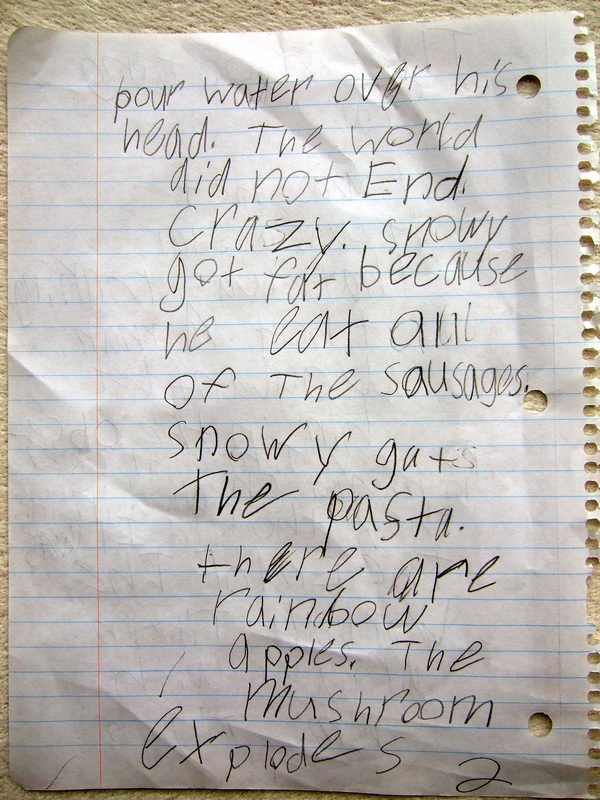 pour water over his
head. The world
did not End.
Crazy. snowy
got fat because
he eat all
of The sausages.
snowy gats
The pasta.
there are
rainbow
apples. The
mushroom
explodes 2